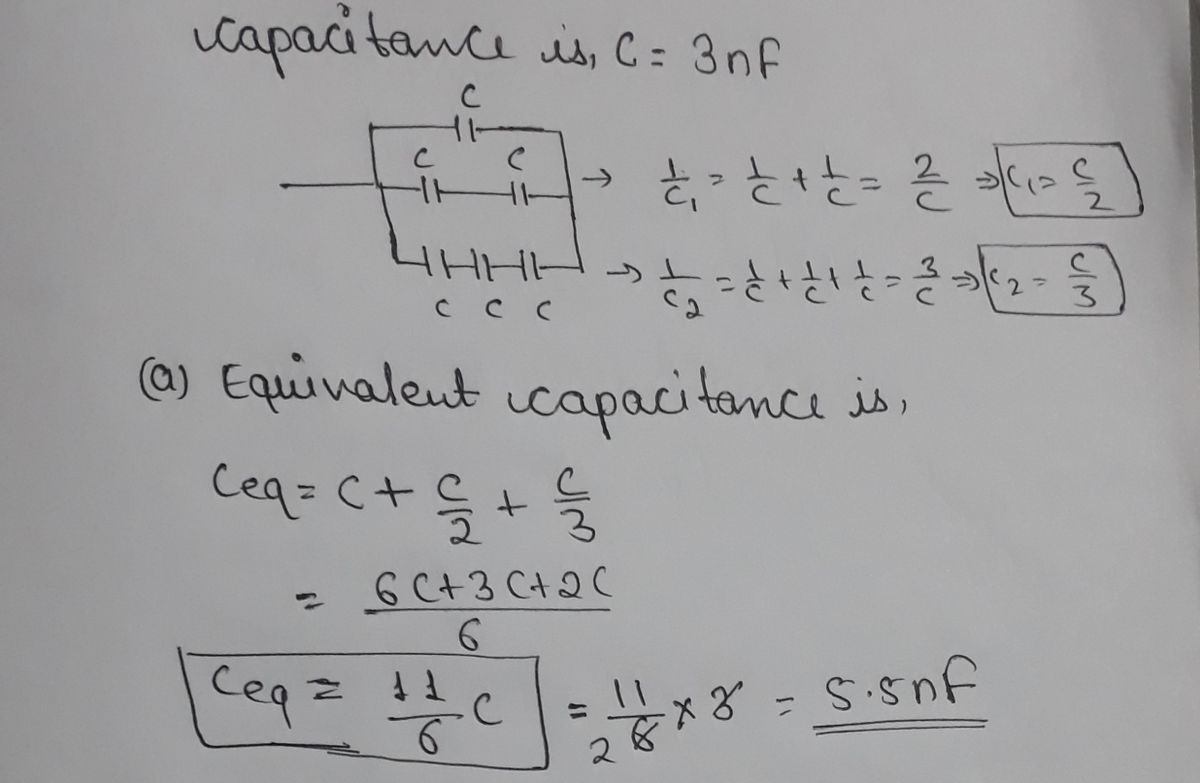 capacitance is, C = 3nf
C
C C → 1/C₁ = 1/C + 1/C = 2/C ⇒ C₁ = C/2
→ 1/C₂ = 1/C + 1/C + 1/C = 3/C ⇒ C₂ = C/3
C C C
(a) Equivalent capacitance is,
Ceq = C + C/2 + C/3
= 6C+3C+2C/6
Ceq = 11/6 C = 11/6 × 3 = 5.5nf
2